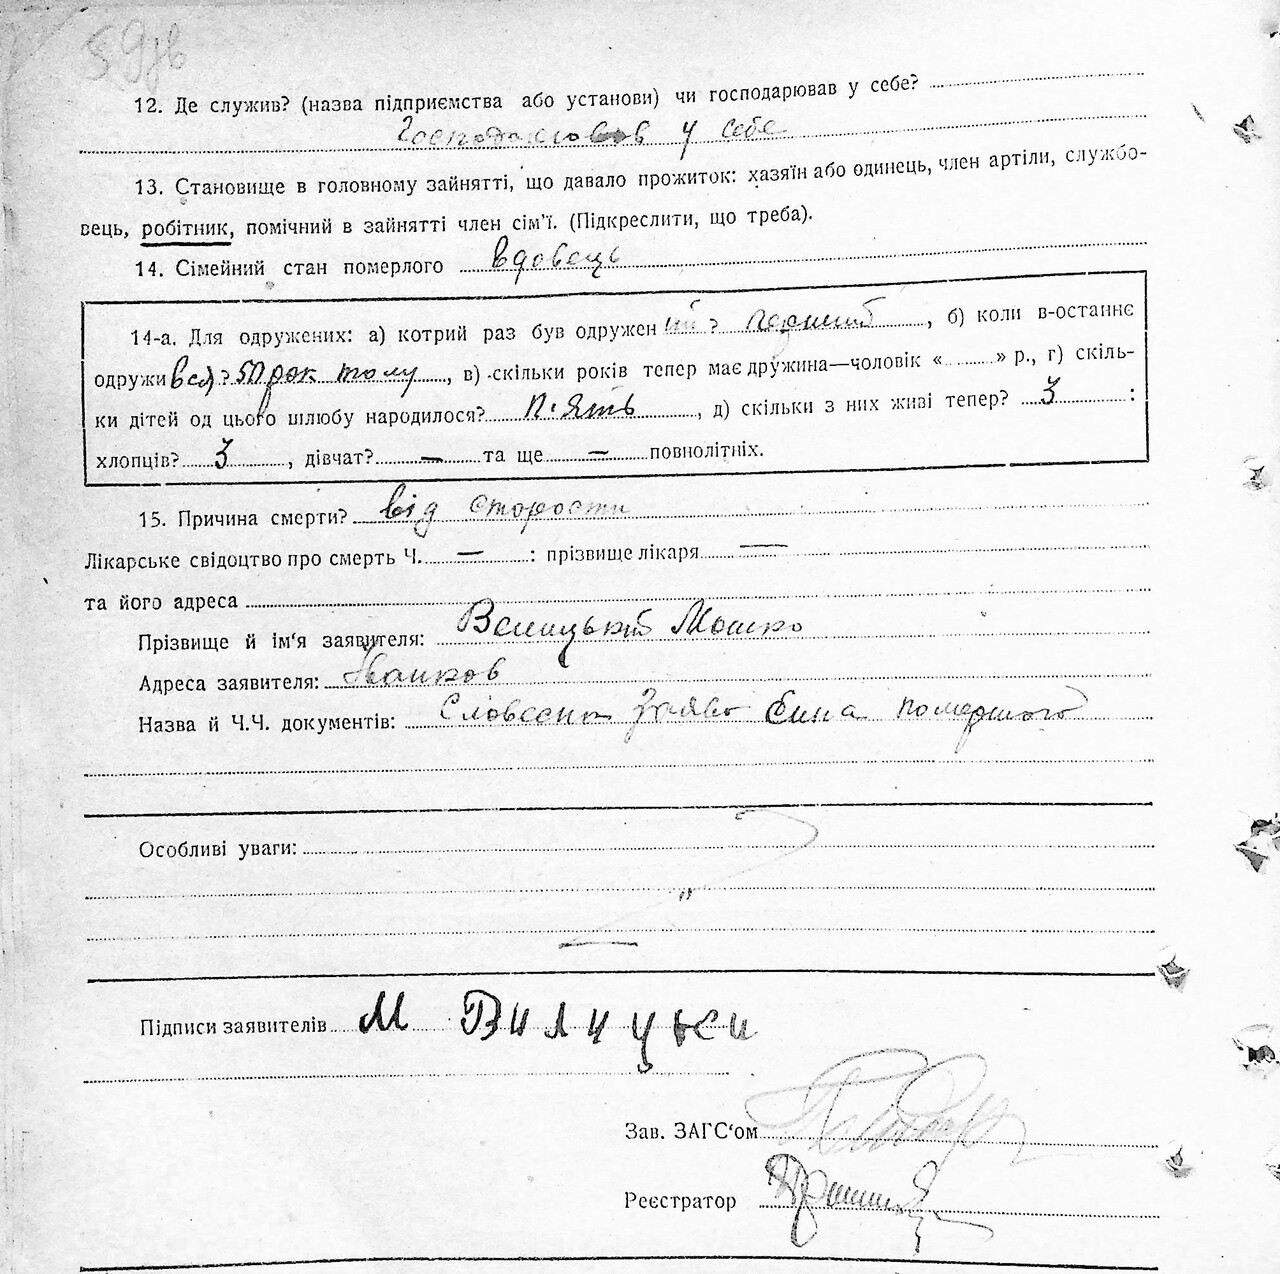 59зв
12. Де служив? (назва підприємства або установи) чи господарював у себе?
Господарював у себе
13. Становище в головному зайнятті, що давало прожиток: хазяїн або одинець, член артіли, службо-
вець, робітник, помічний в зайнятті член сім'ї. (Підкреслити, що треба).
14. Сімейний стан померлого вдовець
14-а. Для одружених: а) котрий раз був одружений? перший, б) коли в-останнє
одруживсь? 50 рок тому, в) скільки років тепер має дружина—чоловік « » р., г) скіль-
ки дітей од цього шлюбу народилося? п'ять, д) скільки з них живі тепер? 3 :
хлопців? 3, дівчат? — та ще — повнолітніх.
15. Причина смерти? від старости
Лікарське свідоцтво про смерть Ч. — : прізвище лікаря —
та його адреса
Прізвище й ім'я заявителя: Велицький Мошко
Адреса заявителя: Іванков
Назва й Ч.Ч. документів: Словесна заява сина помершого
Особливі уваги:
Підписи заявителів М Вилицьки
Зав. ЗАГС'ом
Реєстратор